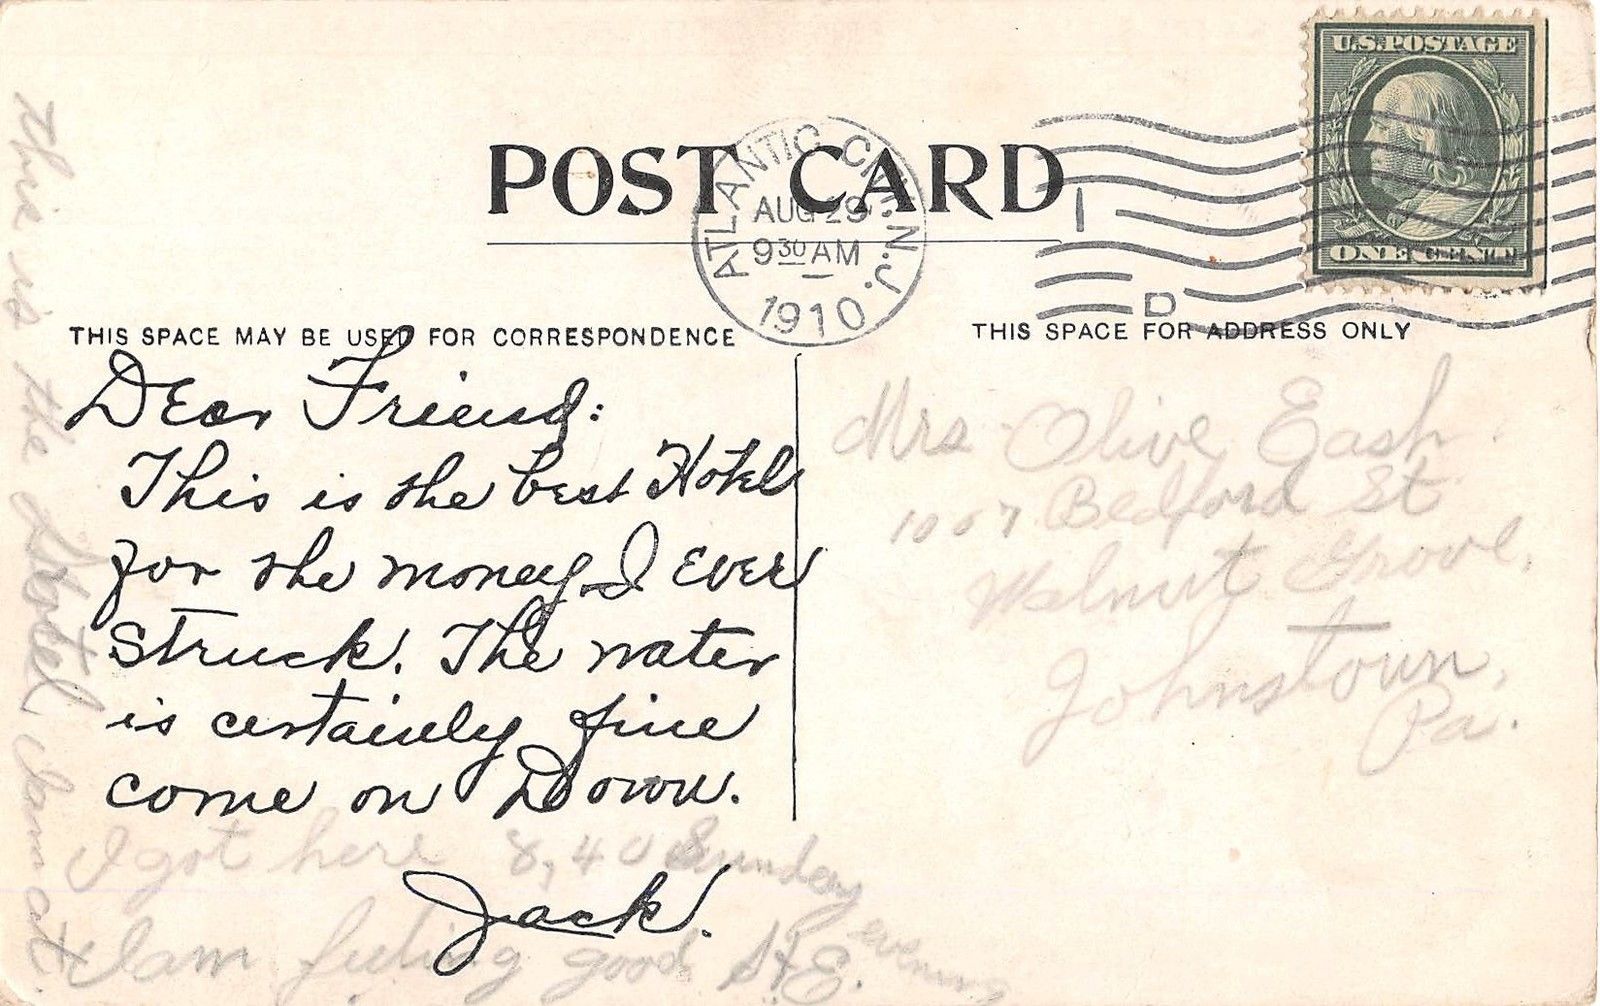 POST CARD
U.S. POSTAGE
ONE CENT
ATLANTIC CITY, N.J.
AUG 29
9 30 AM
1910
D
THIS SPACE MAY BE USED FOR CORRESPONDENCE
THIS SPACE FOR ADDRESS ONLY
Dear Friend:
This is the best Hotel
for the money I ever
Struck. The water
is certainly fine
come on Down.
Jack.
I got here 8,40 Sunday evening
I am feeling good
This is the Hotel I am at
Mrs Olive Eash.
1007 Bedford St
Walnut Grove,
Johnstown,
Pa.